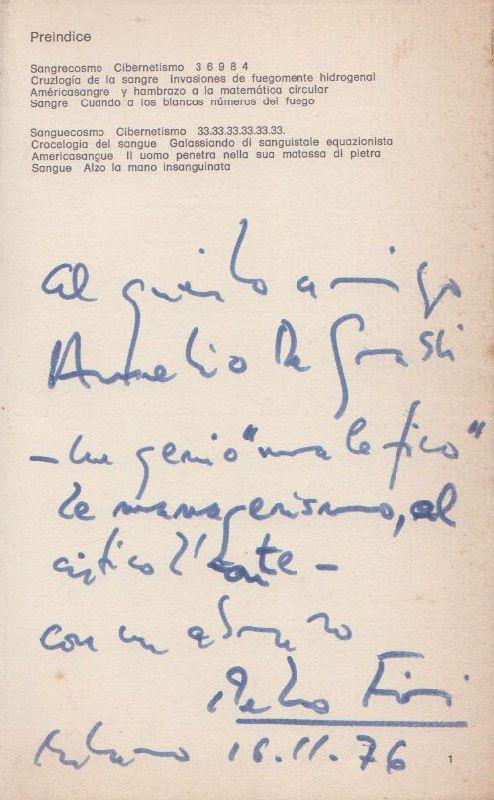 Preindice
Sangrecosmo Cibernetismo 3 6 9 8 4
Cruzlogía de la sangre Invasiones de fuegomente hidrogenal
Américasangre y hambrazo a la matemática circular
Sangre Cuando a los blancos números del fuego
Sanguecosmo Cibernetismo 33.33.33.33.33.33.
Crocelogia del sangue Galassiando di sanguistale equazionista
Americasangue Il uomo penetra nella sua matassa di pietra
Sangue Alzo la mano insanguinata
al amigo
Aurelio De
- genio "malefico"
managerismo, al
-
con un abrazo
Milano 16.11.76
1